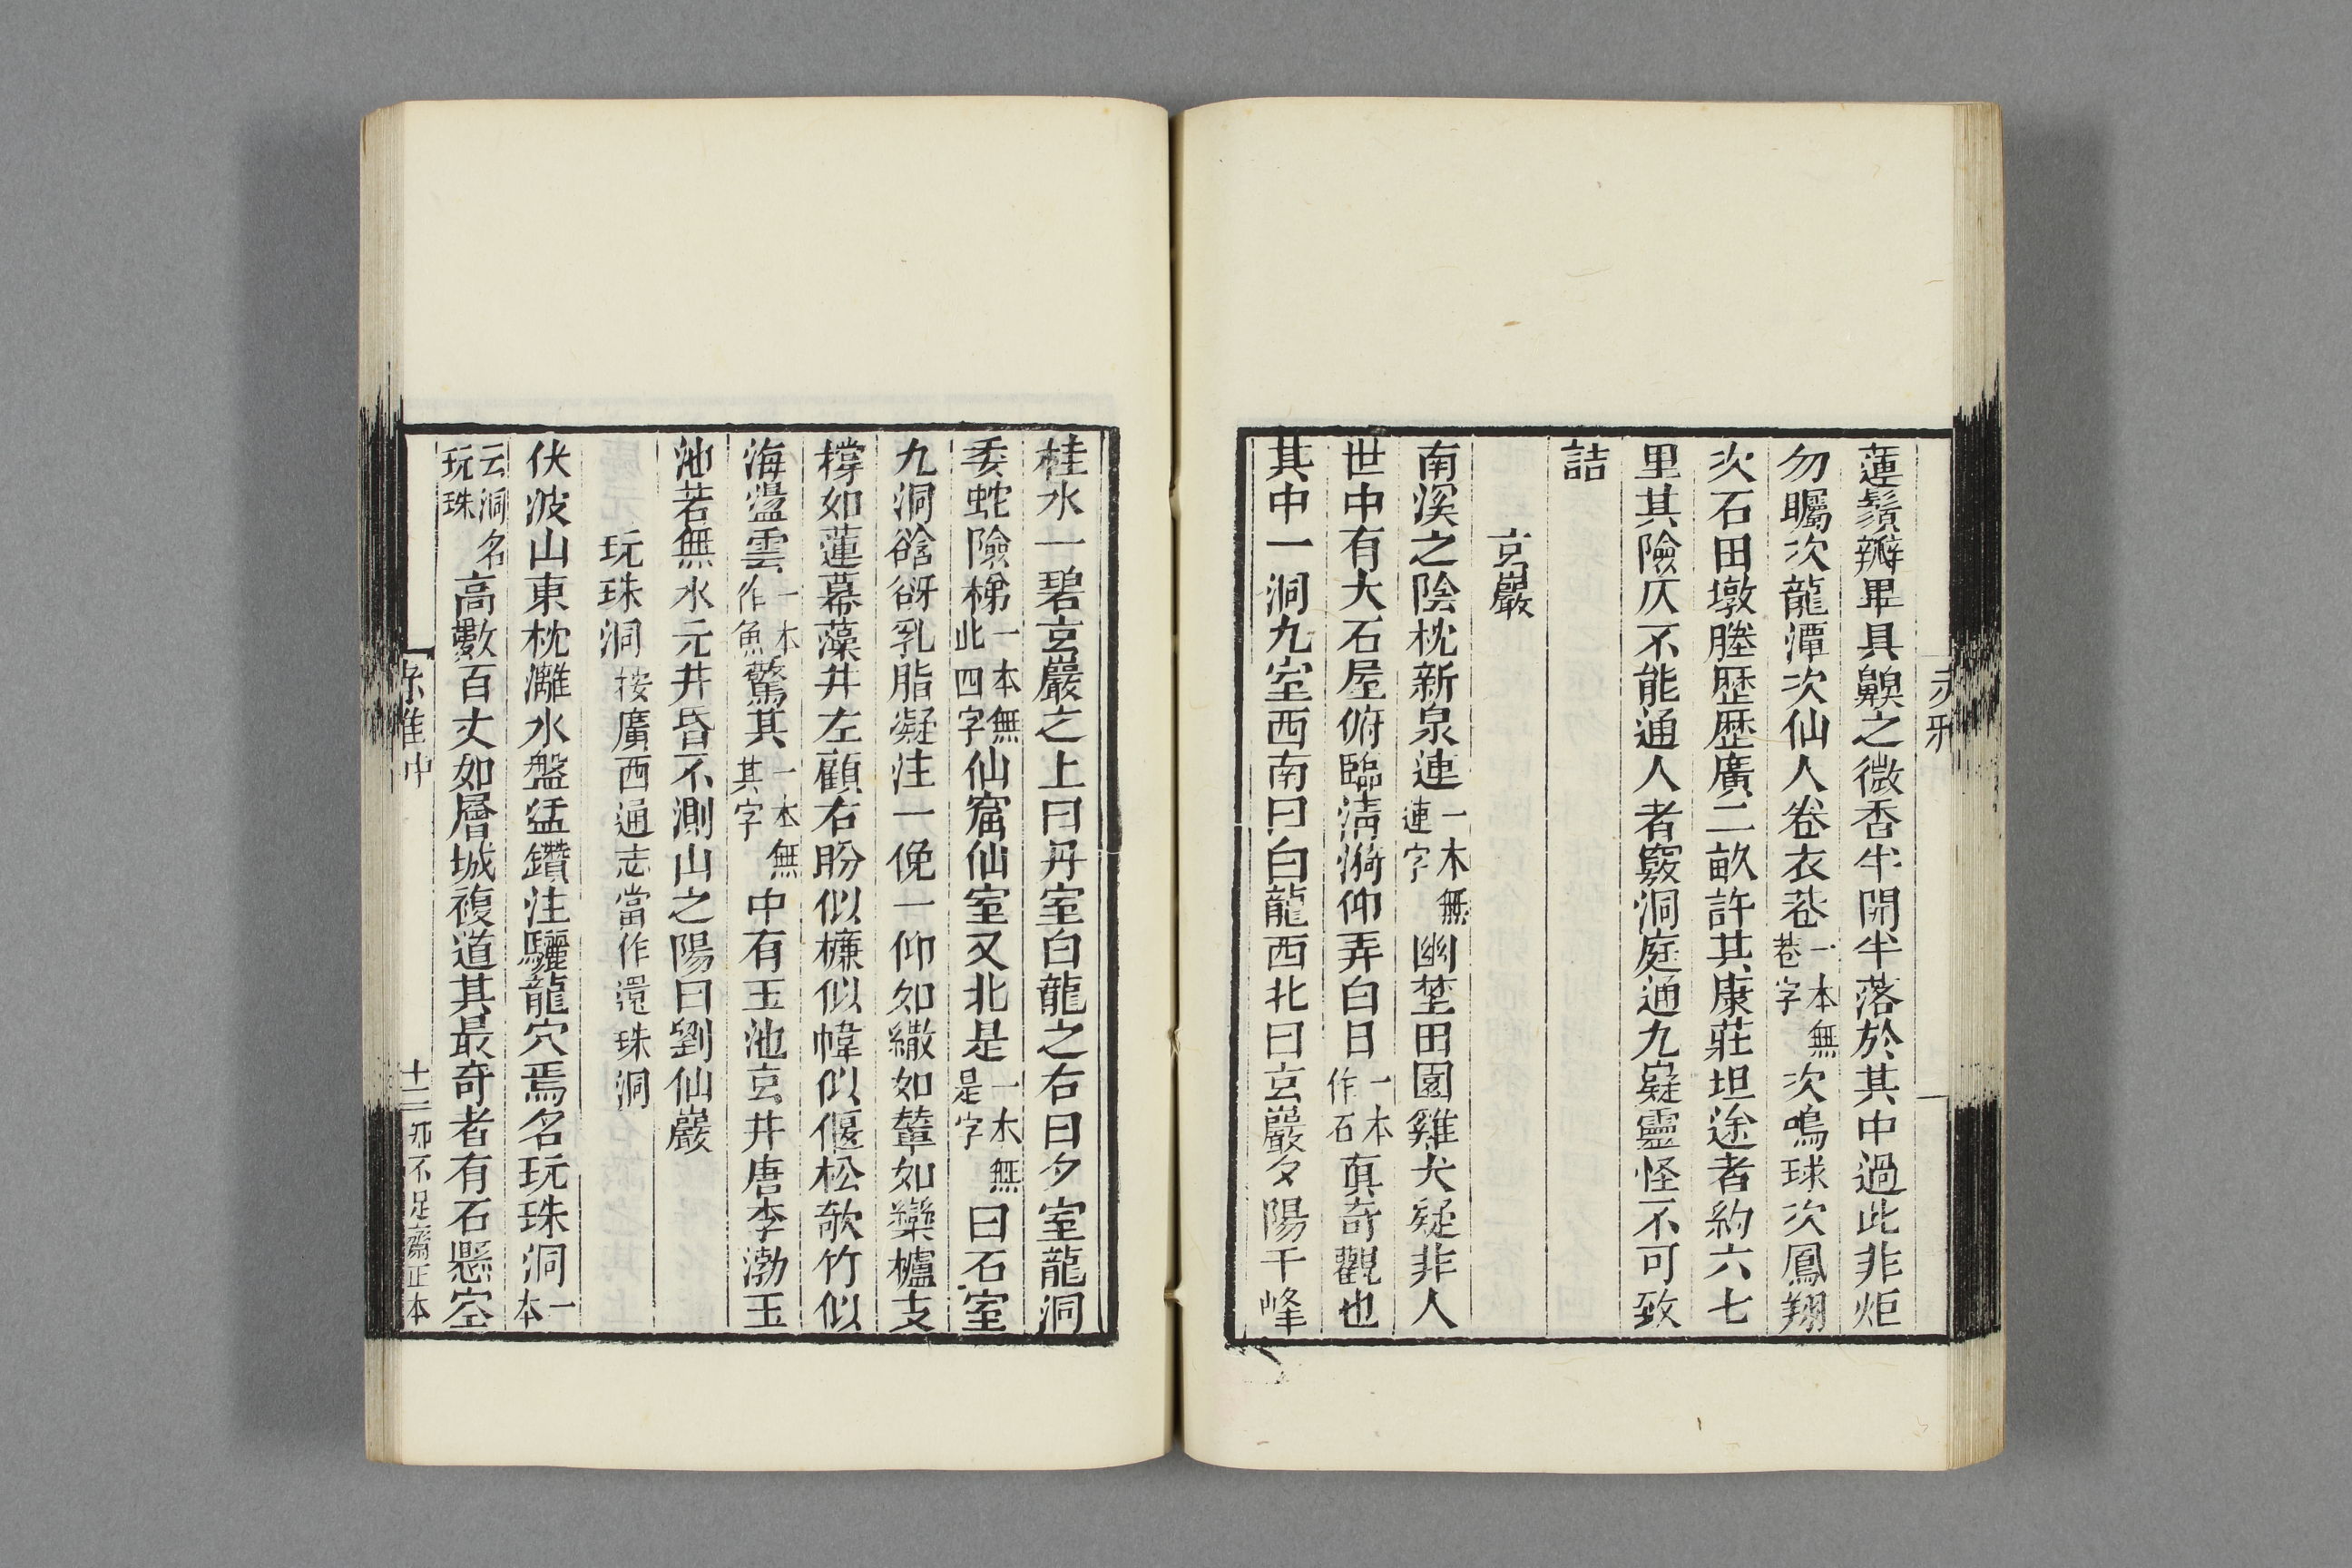 赤雅
蓮鬚瓣畢具鼻之微香半開半落於其中過此非炬
勿矚次龍潭次仙人卷衣巷一本無巷字次鳴球次鳳翔
次石田墩塍歷歷廣二畝許其康莊坦途者約六七
里其險仄不能通人者竅洞庭通九嶷靈怪不可致
詰
玄巖
南溪之陰枕新泉連一本無連字幽埜田園雞犬疑非人
世中有大石屋俯臨清漪仰弄白日一本作石真奇觀也
其中一洞九室西南曰白龍西北曰玄巖夕陽千峰
桂水一碧玄巖之上曰丹室白龍之右曰夕室龍洞
委蛇險梯一本無此四字仙窟仙室又北是一本無是字曰石室
九洞谽谺乳脂凝注一俛一仰如繖如輦如欒櫨支
撐如蓮幕藻井左顧右盼似槏似幃似偃松欹竹似
海盪雲一本作魚驚其一本無其字中有玉池玄井唐李渤玉
池若無水元井昏不測山之陽曰劉仙巖
玩珠洞按廣西通志當作還珠洞
伏波山東枕灕水盤猛鑽注驪龍穴焉名玩珠洞一本
云洞名玩珠高數百丈如層城複道其最奇者有石懸空
十二 知不足齋正本